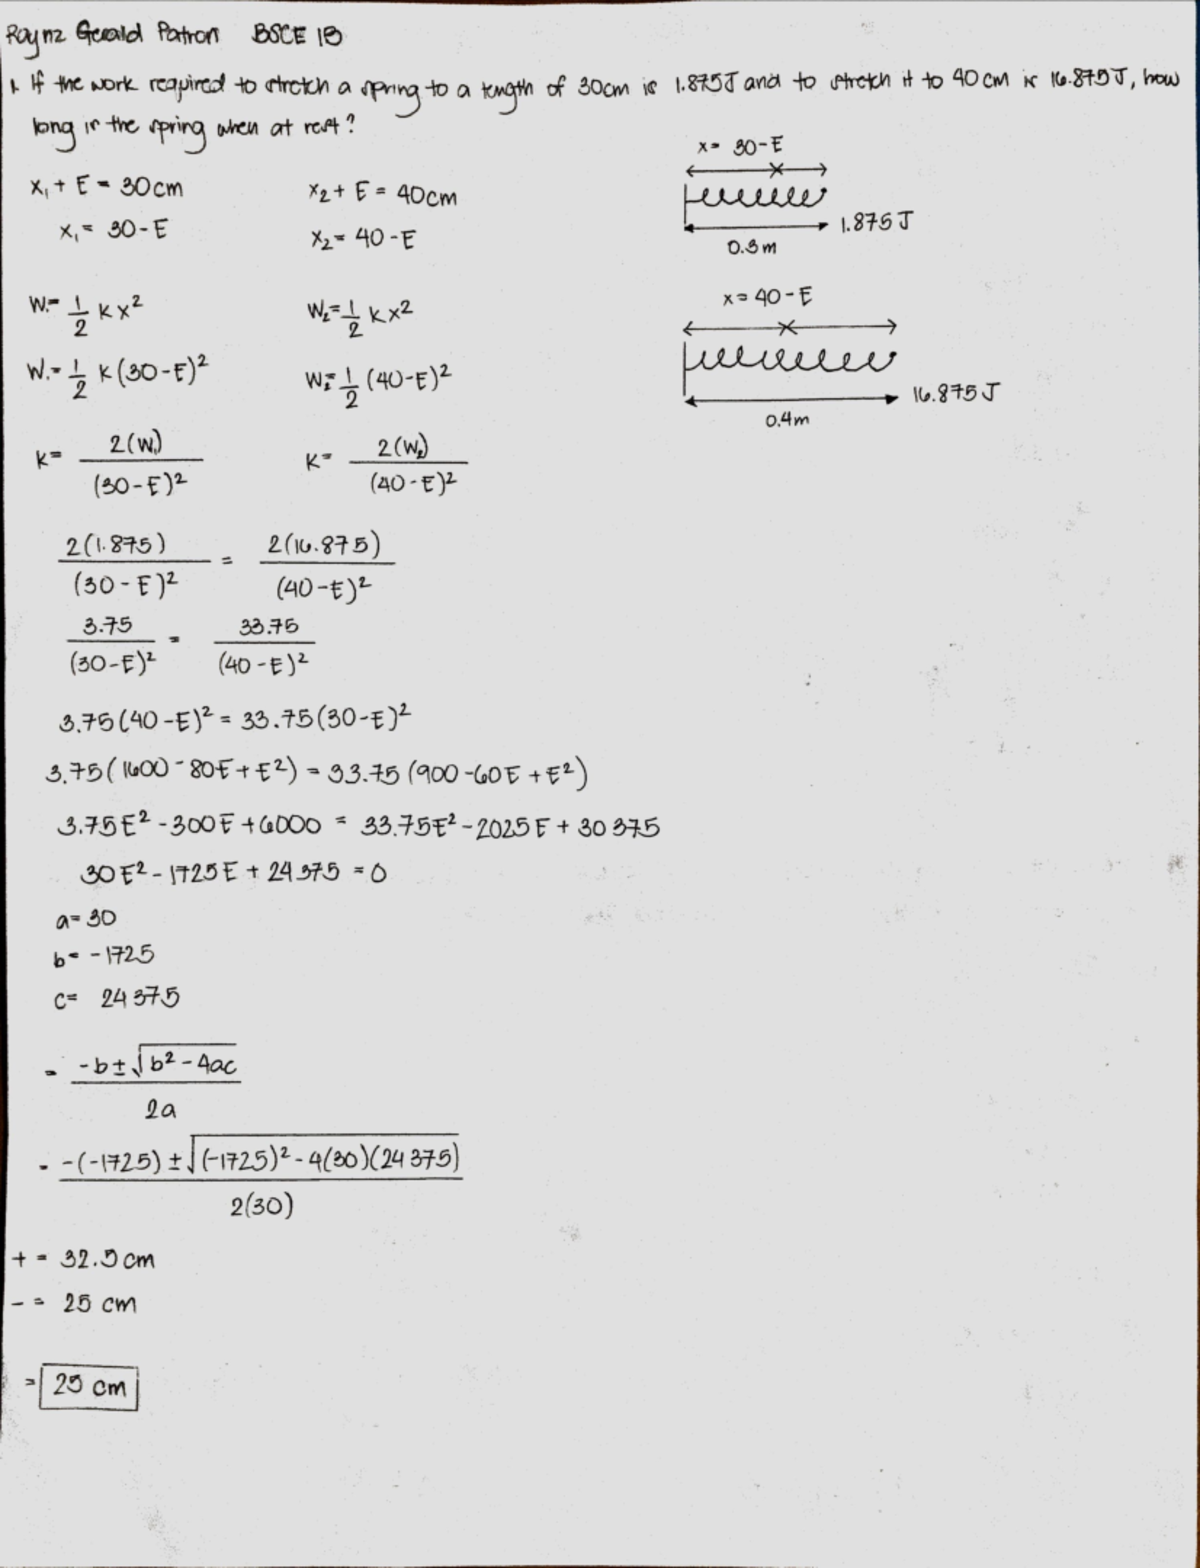 Raynz Gerald Patron BSCE 1B
1. If the work required to stretch a spring to a length of 30cm is 1.875J and to stretch it to 40cm is 16.875J, how
long is the spring when at rest?
x₁ + E = 30cm
x₂ + E = 40cm
x₁ = 30-E
x₂ = 40-E
x= 30-E
1.875 J
0.3m
x= 40-E
16.875 J
0.4m
W₁= 1/2 Kx²
W₂= 1/2 Kx²
W₁= 1/2 K(30-E)²
W₂= 1/2 (40-E)²
K= 2(W₁)/(30-E)²
K= 2(W₂)/(40-E)²
2(1.875)/(30-E)² = 2(16.875)/(40-E)²
3.75/(30-E)² = 33.75/(40-E)²
3.75(40-E)² = 33.75(30-E)²
3.75(1600-80E+E²) = 33.75(900-60E+E²)
3.75E²-300E+6000 = 33.75E²-2025E+30375
30E²-1725E+24375 = 0
a= 30
b= -1725
c= 24375
= -b±√b²-4ac / 2a
= -(-1725)±√(-1725)²-4(30)(24375) / 2(30)
+ = 32.5cm
- = 25 cm
= 25 cm